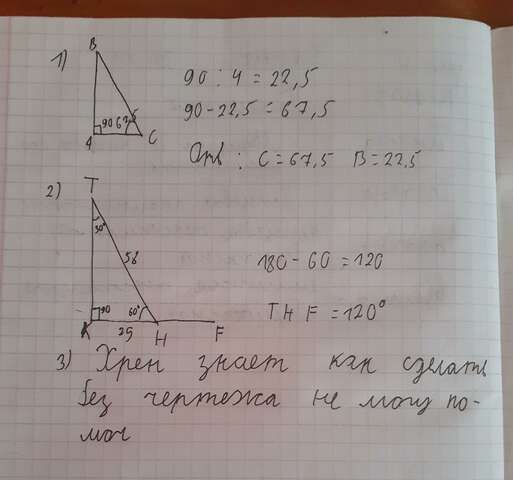 1)
B
90 67,5
A C
90 : 4 = 22,5
90 - 22,5 = 67,5
Отв : C = 67,5 B = 22,5
2)
T
30°
58
90 60°
K 29 H F
180 - 60 = 120
T H F = 120°
3) Хрен знает как сделать
без чертежа не могу по-
моч